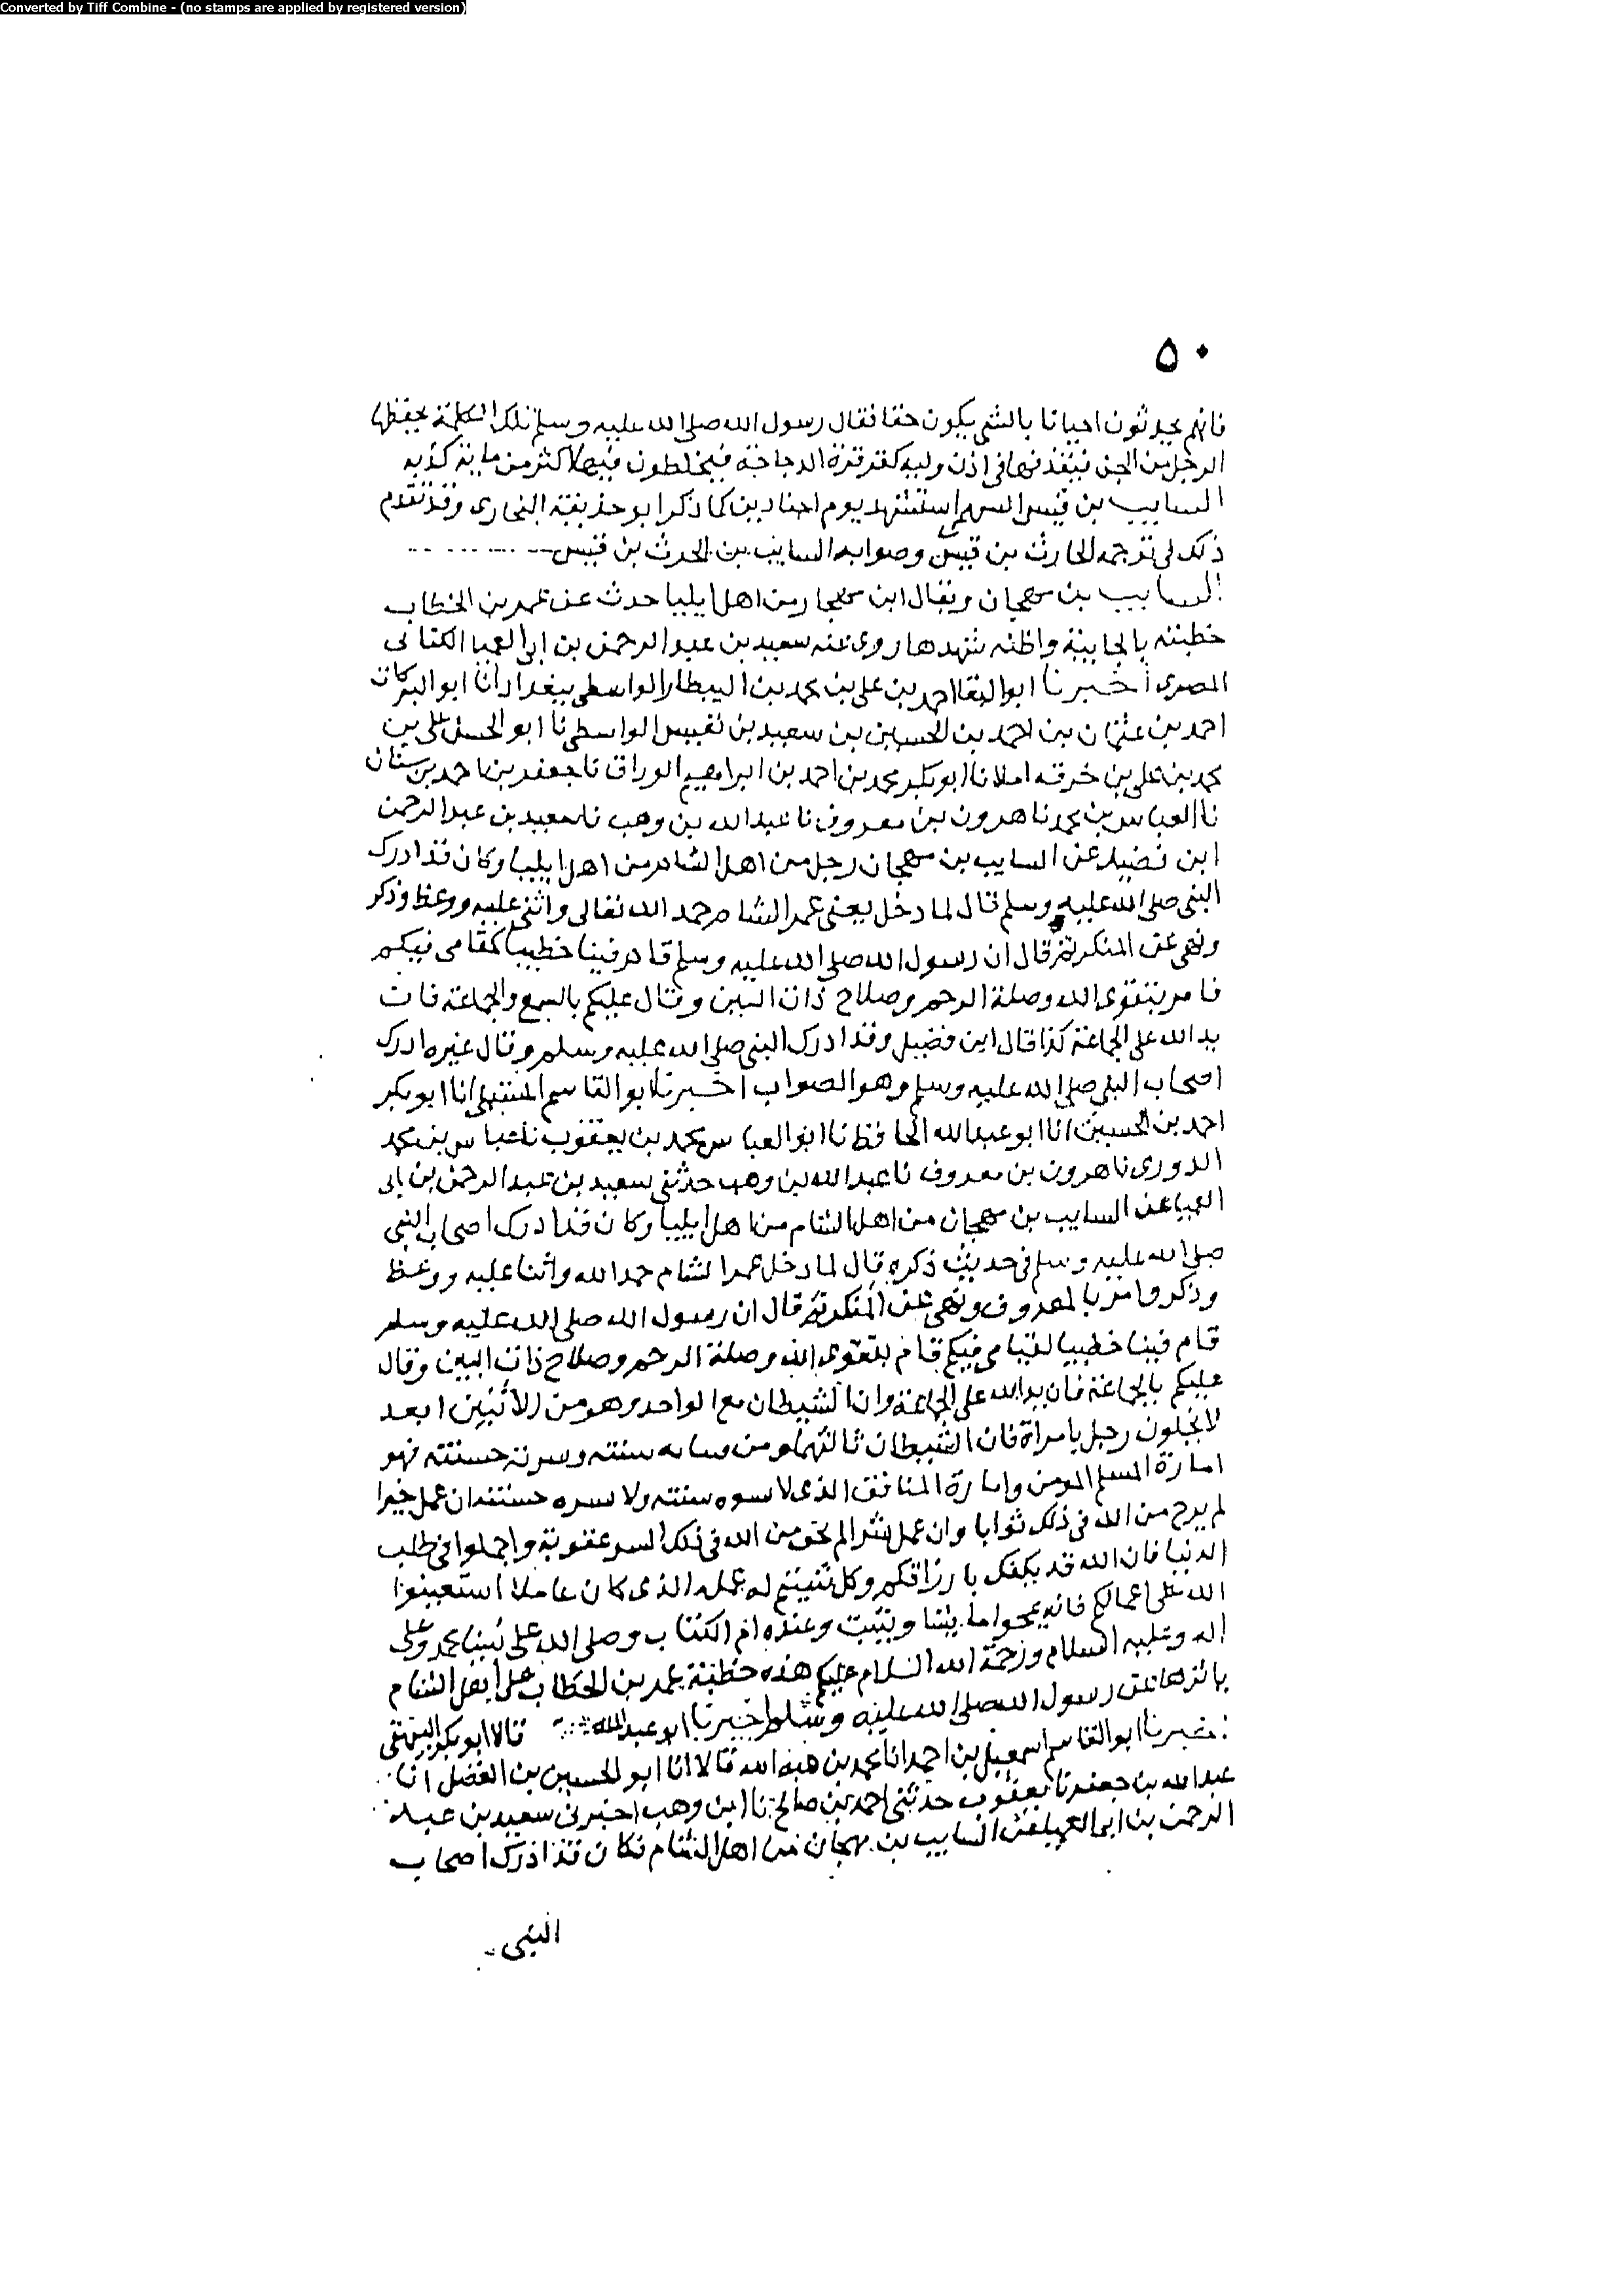 Converted by Tiff Combine - (no stamps are applied by registered version)
٥٠
فانهم يحدثون احيانا بالشى يكون حقا فقال رسول الله صلى الله عليه وسلم تلك الكلمة يحفظها
الرجل من الجن فيقذفها فى اذن وليه كقرقرة الدجاجة فيخلطون فيها اكثر من ماية كذبه
السايب بن قيس السهمى استشهد يوم اجنادين كما ذكر ابو حذيفة البخارى وقد تقدم
ذلك فى ترجمه الحارث بن قيس وصوابه السايب بن الحرث بن قيس
السايب بن مهجان ويقال ابن مهجار من اهل ايليا حدث عن عمر بن الخطاب
خطبته بالجابية واظنه شهدها روى عنه سعيد بن عبد الرحمن بن ابى العميا الكنانى
المصرى اخبرنا ابو البقا احمد بن على بن محمد بن البيطار الواسطى ببغداد انا ابو البركات
احمد بن عثمان بن احمد بن الحسين بن سعيد بن نفيس الواسطى نا ابو الحسن على بن
محمد بن على بن خرفه املانا ابو بكر محمد بن احمد بن ابراهيم الوراق نا جعفر بن احمد بن سنان
نا العباس بن محمد نا هرون بن معروف نا عبد الله بن وهب نا سعيد بن عبد الرحمن
ابن فضيل عن السايب بن مهجان رجل من اهل الشام من اهل ايليا وكان قد ادرك
النبى صلى الله عليه وسلم قال لما دخل يعنى عمر الشام حمد الله تعالى واثنى عليه ووعظ وذكر
ونهى عن المنكر ثم قال ان رسول الله صلى الله عليه وسلم قام فينا خطيبا كمقامى فيكم
فامر بتقوى الله وصلة الرحم وصلاح ذات البين وقال عليكم بالسمع والجماعة فان
يد الله على الجماعة كذا قال ابن فضيل وقد ادرك النبى صلى الله عليه وسلم وقال غيره ادرك
اصحاب النبى صلى الله عليه وسلم وهو الصواب اخبرنا ابو القاسم انا ابو بكر
احمد بن الحسين انا ابو عبد الله الحافظ نا ابو العباس محمد بن يعقوب نا عباس بن محمد
الدورى نا هرون بن معروف نا عبد الله بن وهب حدثنى سعيد بن عبد الرحمن بن ابى
العميا عن السايب بن مهجان من اهل الشام من اهل ايليا وكان قد ادرك اصحاب النبى
صلى الله عليه وسلم فى حديث ذكره قال لما دخل عمر الشام حمد الله واثنا عليه ووعظ
وذكر وامر بالمعروف ونهى عن المنكر ثم قال ان رسول الله صلى الله عليه وسلم
قام فينا خطيبا لقيامى فيكم فامر بتقوى الله وصلة الرحم وصلاح ذات البين وقال
عليكم بالجماعة فان يد الله على الجماعة وان الشيطان مع الواحد وهو من الاثنين ابعد
لا يخلون رجل بامراة فان الشيطان ثالثهما ومن ساه سيته وسرته حسنته فهو
امارة المسلم المومن وامارة المنافق الذى لا سوه سيته ولا سره حسنته ان عمل خيرا
لم يرج من الله فى ذلك ثوابا وان عمل شرا لم يخف من الله فى ذلك السر عقوبة واجملوا فى طلب
الدنيا فان الله قد يكفل بارزاقكم وكل له عمله الذى كان عاملا استعينوا
الله على اعمالكم فانه يمحوا ما يشا ويثبت وعنده ام الكتاب وصلى الله على نبينا محمد وعلى
اله وعليه السلام ورحمة الله السلام عليكم هذه خطبة عمر بن الخطاب على اهل الشام
ياثرها عن رسول الله صلى الله عليه وسلم اخبرنا ابو عبد الله قالا ابو بكر البيهقى
اخبرنا ابو القاسم اسمعيل بن احمد انا محمد بن هبة الله قالا انا ابو الحسين بن الفضل انا
عبد الله بن جعفر نا يعقوب حدثنى احمد بن صالح نا ابن وهب اخبرنى سعيد بن عبد
الرحمن بن ابى العميا عن السايب بن مهجان من اهل الشام فكان قد ادرك اصحاب
النبى